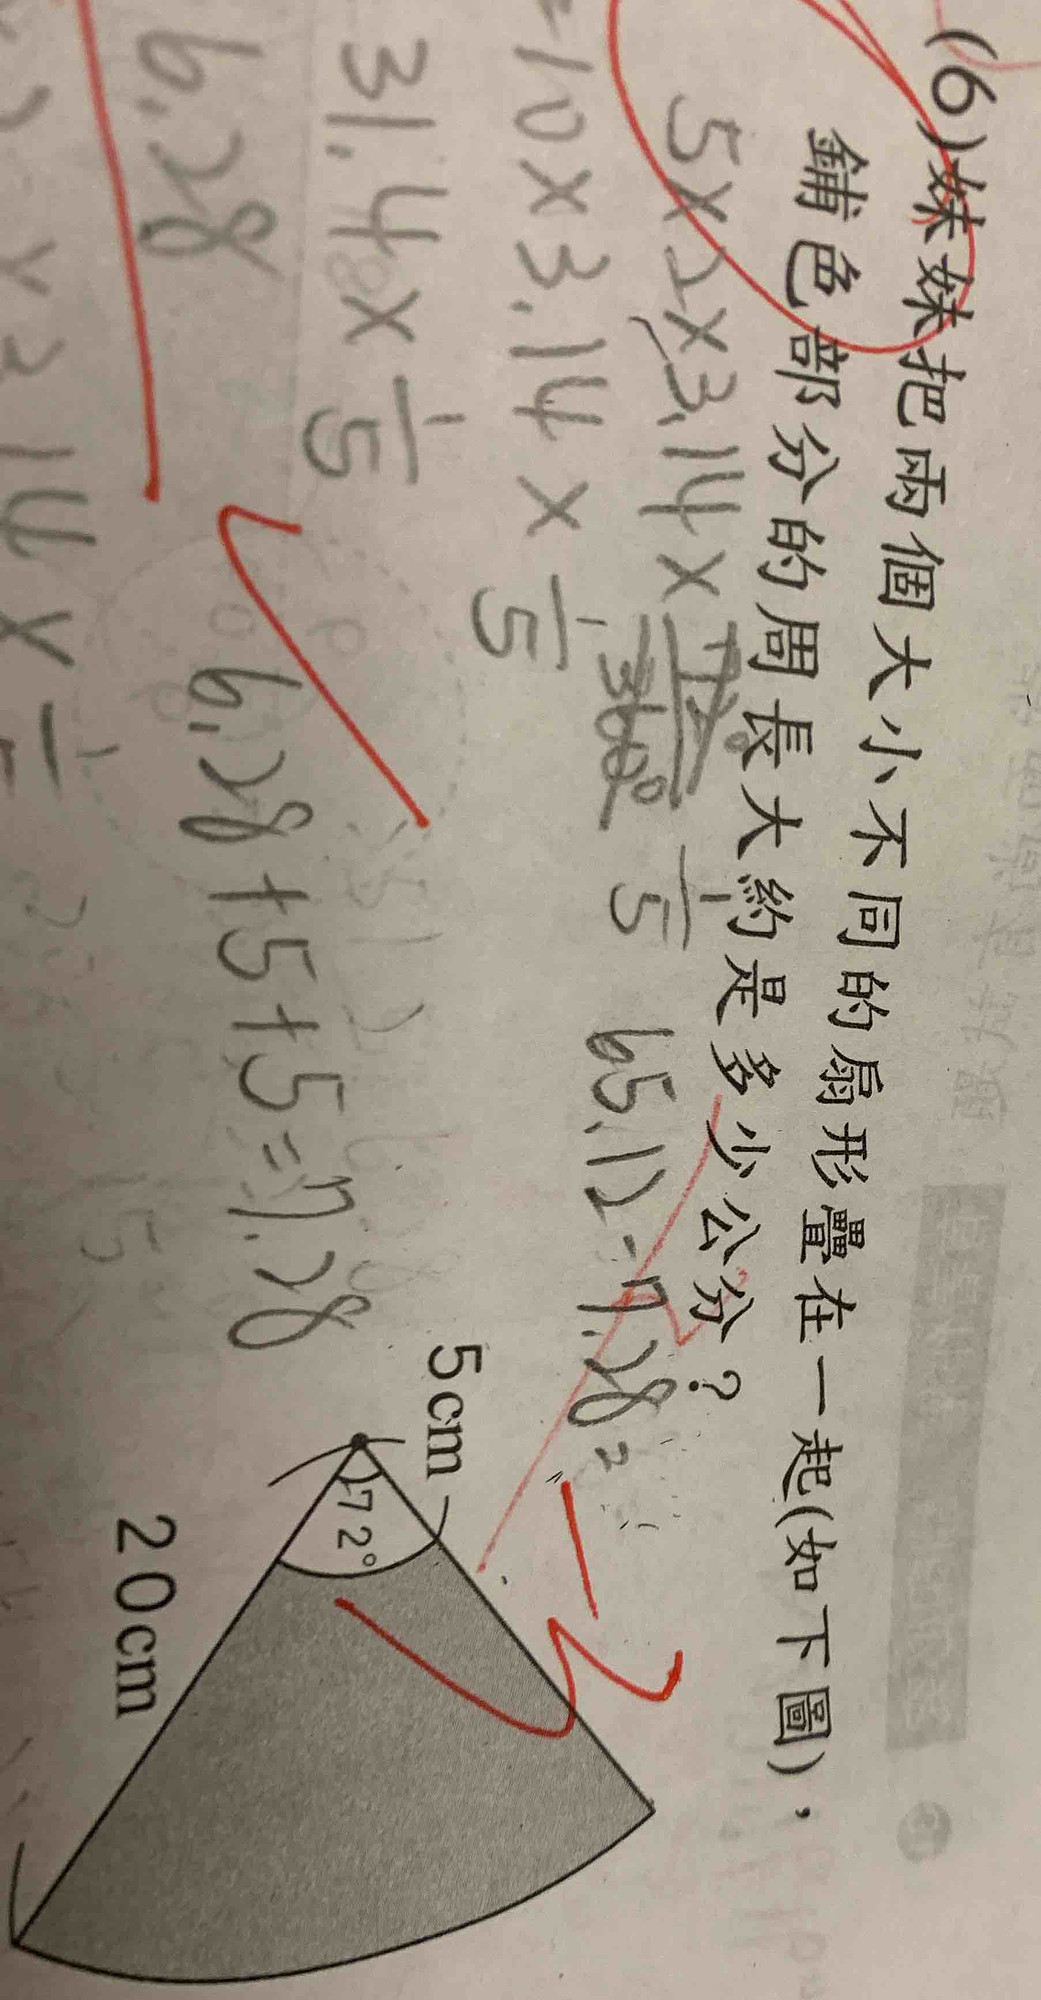 (6)妹妹把兩個大小不同的扇形疊在一起(如下圖)，
鋪色部分的周長大約是多少公分？
5×2×3.14×72°/360° 1/5
=10×3.14×1/5
31.4×1/5
6.28
65.12-17.28=
6.28+5+5=17.28
5cm
72°
20cm